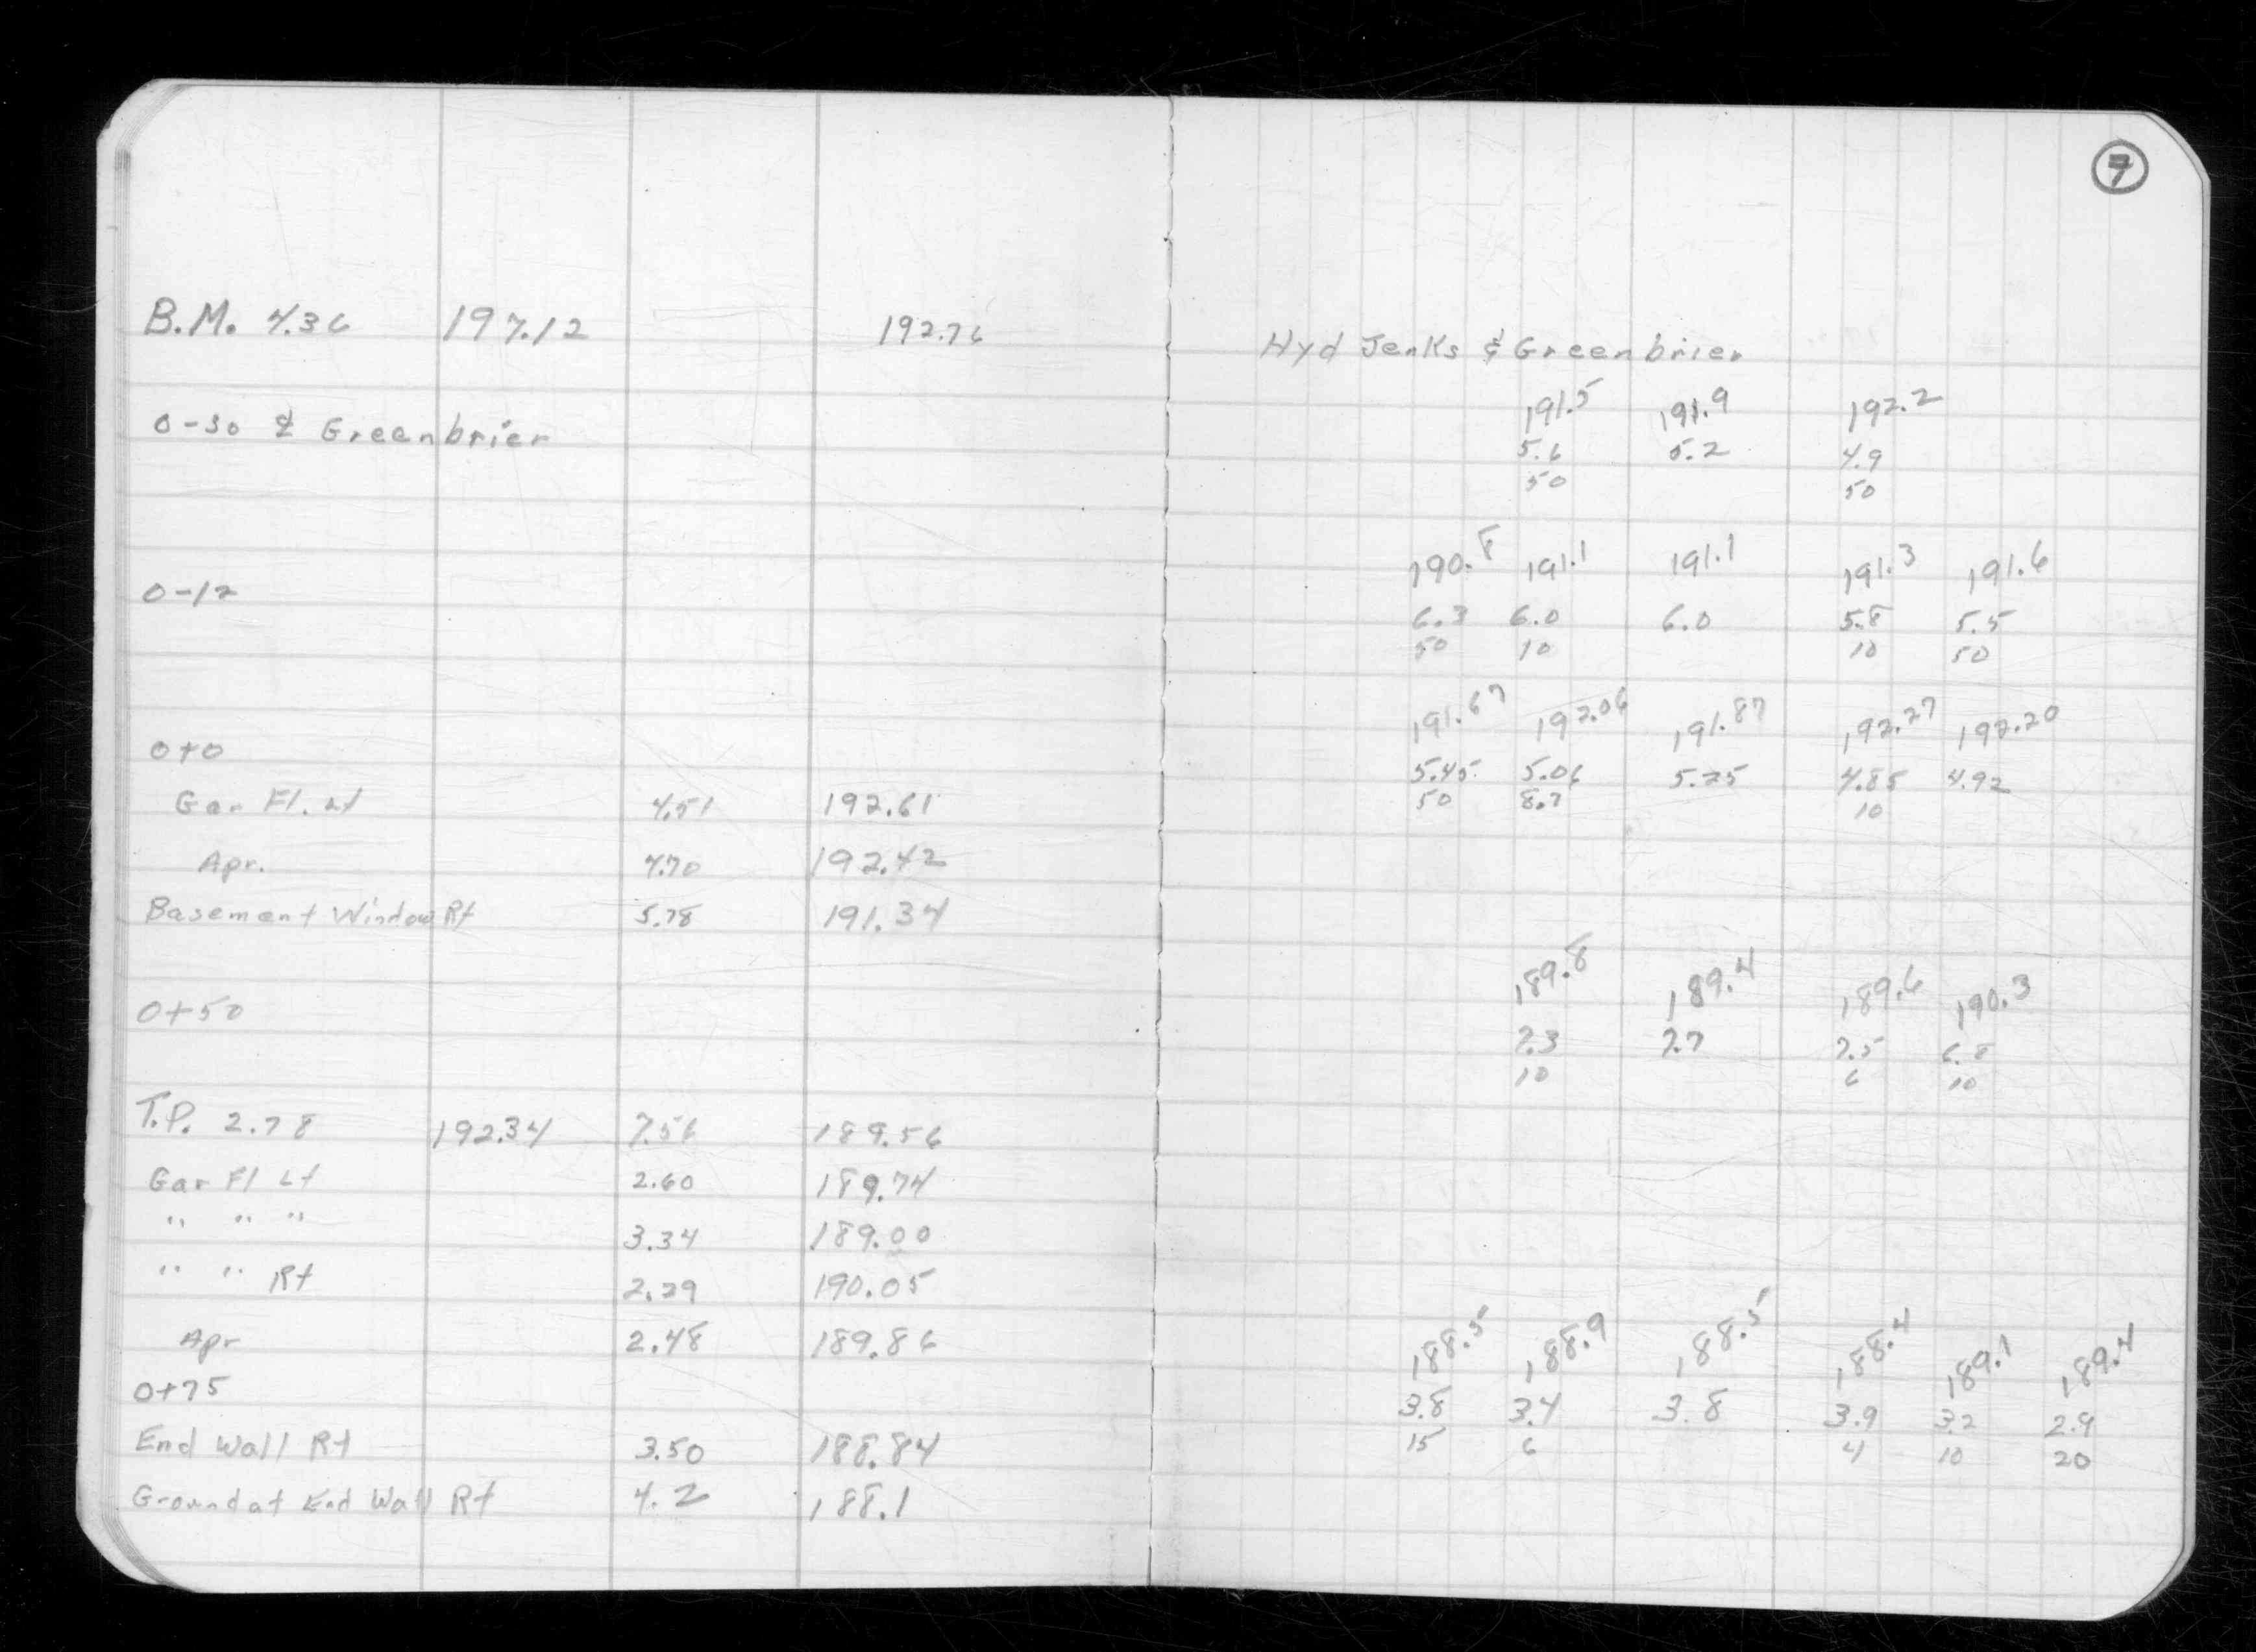 7
B.M. 4.36 197.12 192.76
0-30 ℄ Greenbrier
0-12
0+0
Gar Fl. Lt 4.51 192.61
Apr. 4.70 192.42
Basement Window Rt 5.78 191.34
0+50
T.P. 2.78 192.34 7.56 189.56
Gar Fl Lt 2.60 189.74
" " " 3.34 189.00
" " Rt 2.29 190.05
Apr 2.48 189.86
0+75
End Wall Rt 3.50 188.84
Ground at End Wall Rt 4.2 188.1
Hyd Jenks & Greenbrier
191.5 191.9 192.2
5.6 5.2 4.9
50 50
190.8 191.1 191.1 191.3 191.6
6.3 6.0 6.0 5.8 5.5
50 10 10 50
191.67 192.06 191.87 192.27 192.20
5.45 5.06 5.25 4.85 4.92
50 8.7 10
189.8 189.4 189.6 190.3
7.3 7.7 7.5 6.8
10 6 10
188.5 188.9 188.5 188.4 189.1 189.4
3.8 3.4 3.8 3.9 3.2 2.9
15 6 4 10 20